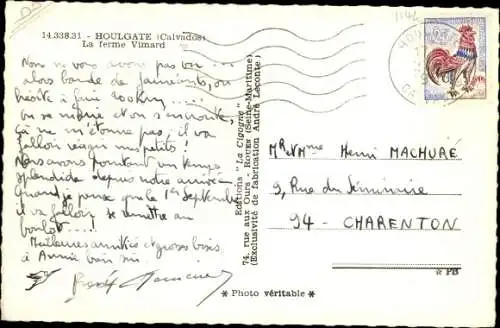 14.338.31 - HOULGATE (Calvados)
La ferme Vimard
Non ne vous avons pas vu ...
alors bande de
hésite à faire .....
ou se même et on s'ennuie,
ça ne m'étonne pas, il va
falloir réagir mes petits!
Nous avons pourtant un temps
splendide depuis notre arrivée
Quand je pense que le 1er Septembre
il va falloir se remettre au
boulot ....!
Meilleures amitiés et grosses bises
à Annie
Editions "La Cigogne"
74, rue aux Ours - ROUEN (Seine-Maritime)
(Exclusivité de fabrication André Leconte)
Mr & Mme Henri MACHURÉ
9, Rue du Séminaire
94 - CHARENTON
* PB
* Photo véritable *